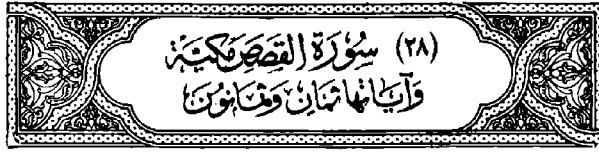 (٢٨) سُورَةُ القَصَصِ مَكيَّة
وَآيَاتُهَا ثَمَانٍ وَثمَانُونَ